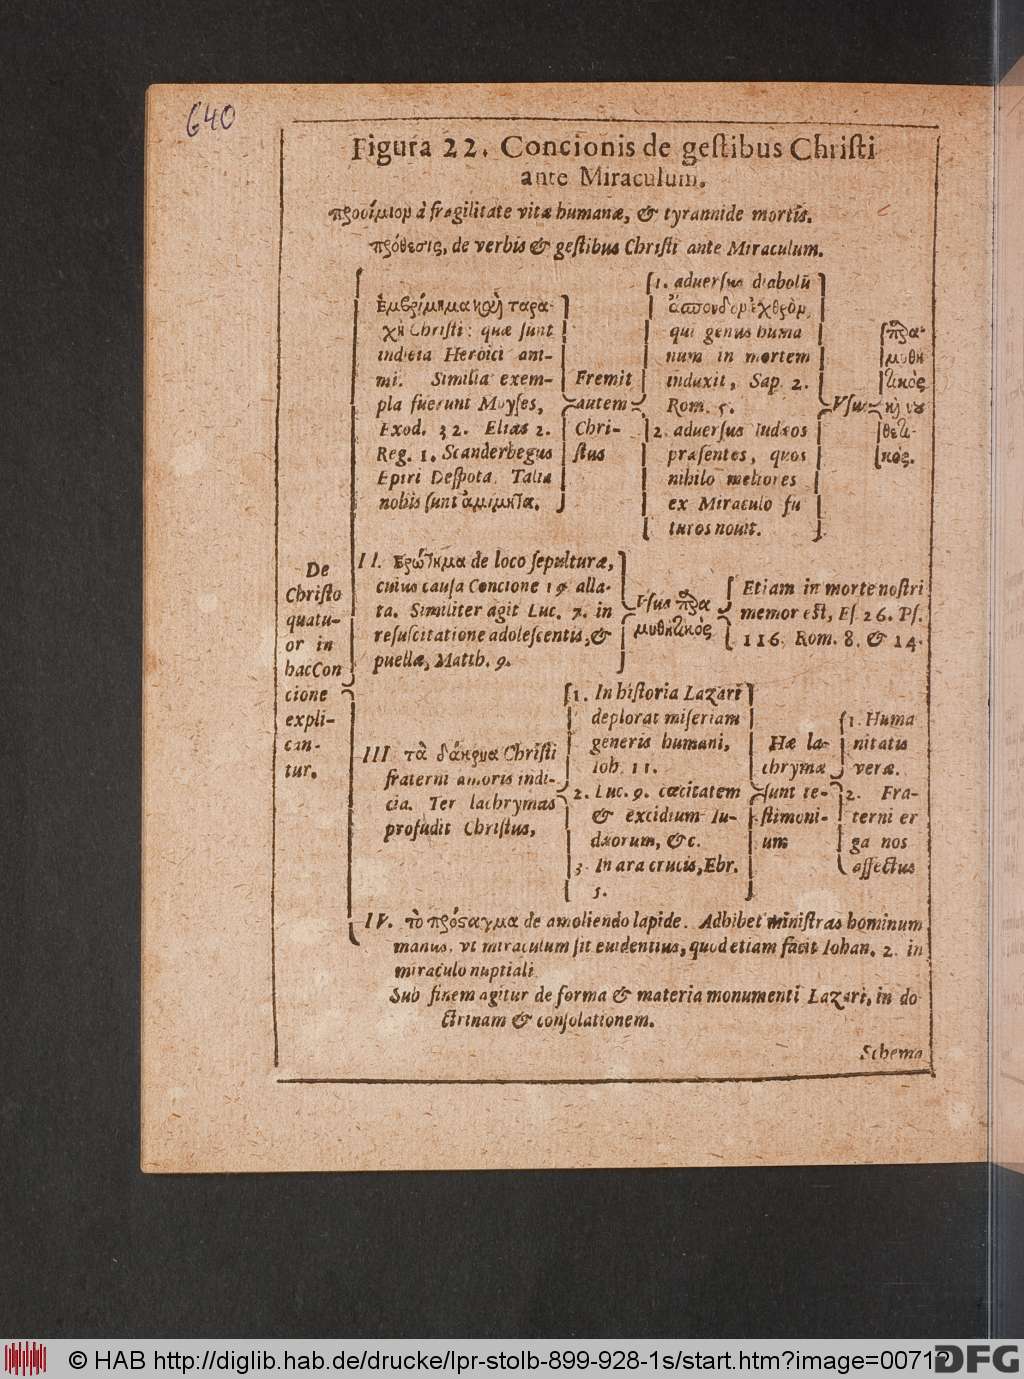 640
Figura 22. Concionis de gestibus Christi
ante Miraculum.
προοίμιον à fragilitate vitæ humanæ, & tyrannide mortis.
πρόθεσις, de verbis & gestibus Christi ante Miraculum.
De
Christo
quatu-
or in
hac Con
cione
expli-
can-
tur.
Ἐμβρίμημα καὶ ταρα-
χὴ Christi: quæ sunt
indicia Heroici ani-
mi. Similia exem-
pla fuerunt Moyses,
Exod. 32. Elias 2.
Reg. 1. Scanderbegus
Epiri Despota. Talia
nobis sunt ἀμίμητα.
Fremit
autem
Chri-
stus
1. adversus diabolũ
ἄσπονδον ἐχθρὸν,
qui genus huma
num in mortem
induxit, Sap. 2.
Rom. 5.
2. adversus Iudæos
præsentes, quos
nihilo meliores
ex Miraculo fu
turos novit.
Vsus
παρα-
μυθη
τικὸς
καὶ νου
θετι-
κός.
II. Ερώτημα de loco sepulturæ,
cuius causa Concione 19 alla-
ta. Similiter agit Luc. 7. in
resuscitatione adolescentis, &
puellæ, Matth. 9.
Vsus παρα
μυθητικὸς
Etiam in morte nostri
memor est, Es. 26. Ps.
116. Rom. 8. & 14.
III. τὰ δάκρυα Christi
fraterni amoris indi-
cia. Ter lachrymas
profudit Christus,
1. In historia Lazari
deplorat miseriam
generis humani,
Ioh. 11.
2. Luc. 9. cœcitatem
& excidium Iu-
dæorum, &c.
3. In ara crucis, Ebr.
5.
Hæ la-
chrymæ
sunt te-
stimoni-
um
1. Huma
nitatis
veræ.
2. Fra-
terni er
ga nos
affectus
IV. τὸ πρόσαγμα de amoliendo lapide. Adhibet ministras hominum
manus, vt miraculum sit euidentius, quod etiam facit Iohan. 2. in
miraculo nuptiali.
Sub finem agitur de forma & materia monumenti Lazari, in do
ctrinam & consolationem.
Schema
© HAB http://diglib.hab.de/drucke/lpr-stolb-899-928-1s/start.htm?image=00712
DFG